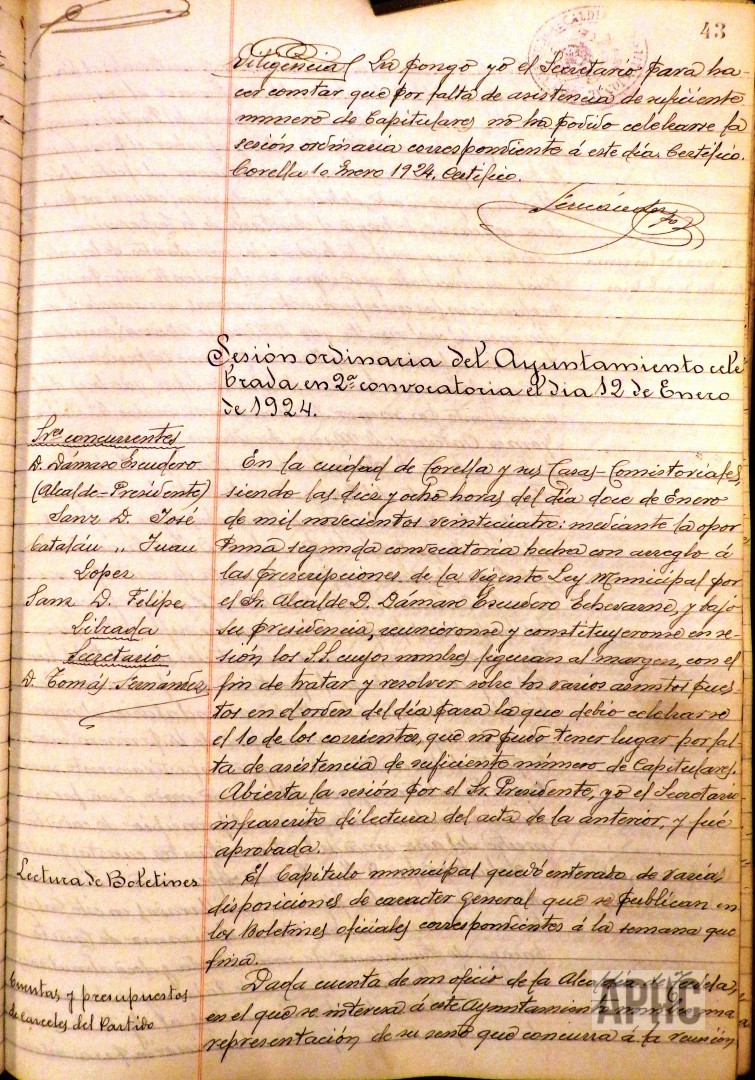 43
Diligencia La pongo yo el Secretario para ha-
cer constar que por falta de asistencia de suficiente
número de Capitulares no ha podido celebrarse la
sesión ordinaria correspondiente á este día. Certifico.
Corella 10 Enero 1924. Certifico.
Sesión ordinaria del Ayuntamiento cele
brada en 2ª convocatoria el dia 12 de Enero
de 1924.
Sres concurrentes
D. Dámaso Escudero
(Alcalde-Presidente)
Sanz D. José
Catalán ,, Juan
Lopez
Sanz D. Felipe
Librada
Secretario
D. Tomás Fernández
En la ciudad de Corella y sus Casas-Consistoriales,
siendo las diez y ocho horas del día doce de Enero
de mil novecientos veinticuatro: mediante la opor
tuna segunda convocatoria hecha con arreglo á
las prescripciones de la Vigente Ley Municipal por
el Sr. Alcalde D. Dámaso Escudero Echevarne, y bajo
su Presidencia, reunieronse y constituyeronse en se-
sión los SS. cuyos nombres figuran al margen, con el
fin de tratar y resolver sobre los varios asuntos pues-
tos en el orden del día para la que debió celebrarse
el 10 de los corrientes, que no pudo tener lugar por fal-
ta de asistencia de suficiente número de Capitulares.
Abierta la sesión por el Sr. Presidente, yo el Secretario
infrascrito di lectura del acta de la anterior, y fué
aprobada.
Lectura de Boletines
El Capitulo municipal quedó enterado de varias
disposiciones de caracter general que se publican en
los Boletines oficiales correspondientes á la semana que
fina.
Cuentas y presupuestos
de carceles del Partido
Dada cuenta de un oficio de la Alcaldía de Tudela,
en el que se interesa á este Ayuntamiento una
representación de su seno que concurra á la reunión
APHC